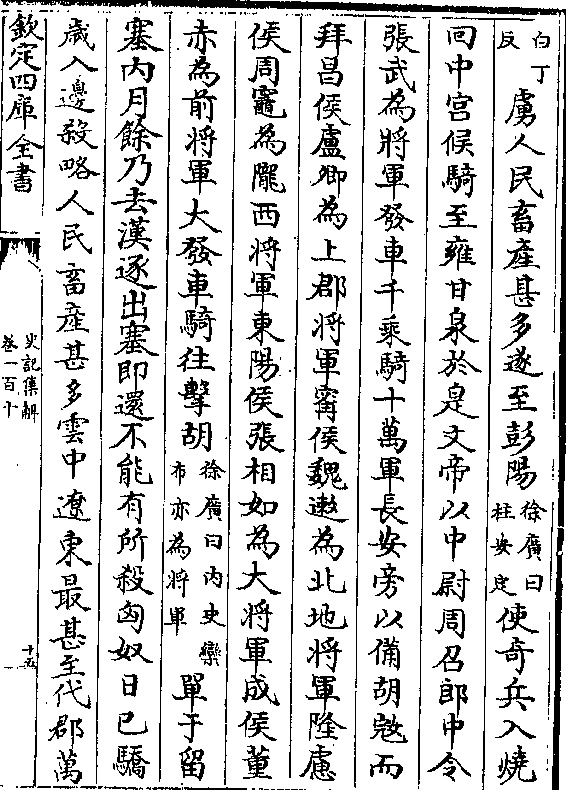 白丁
反
虜人民畜産甚多遂至彭陽
徐廣曰
在安定
使奇兵入燒
回中宫候騎至雍甘泉於是文帝以中尉周召郎中令
張武為將軍發車千乘騎十萬軍長安旁以備胡㓂而
拜昌侯盧卿為上郡將軍甯侯魏遬為北地將軍隆慮
侯周竈為隴西將軍東陽侯張相如為大將軍成侯董
赤為前將軍大發車騎往擊胡
徐廣曰内史欒
布亦為將軍
單于留
塞内月餘乃去漢逐出塞即還不能有所殺匈奴日已驕
歲入邊殺略人民畜産甚多雲中遼東最甚至代郡萬
欽定四庫全書
史記集解
卷一百十
十五